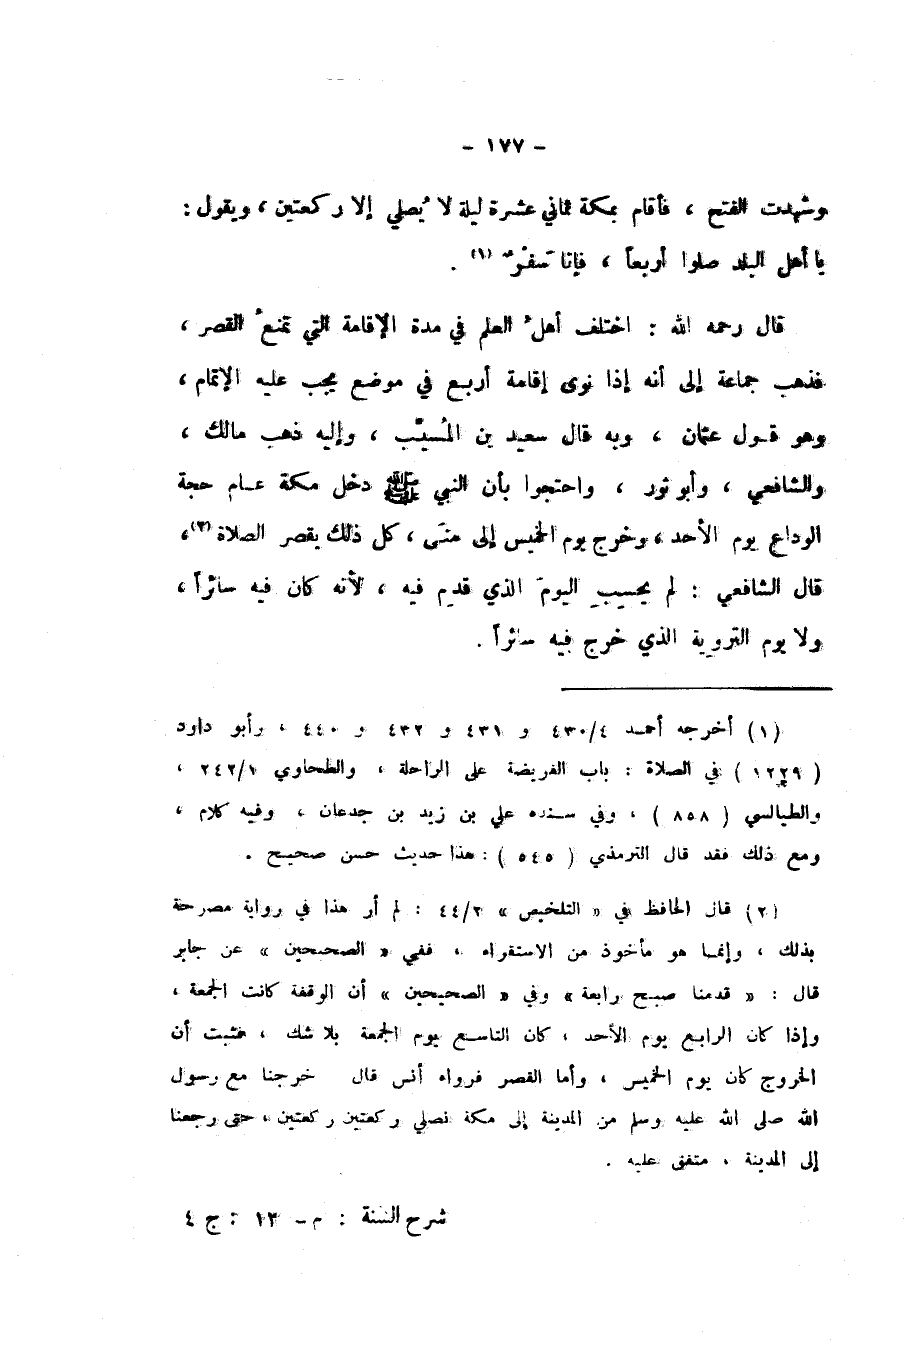 - ١٧٧ -
وشهدت الفتح ، فأقام بمكة ثماني عشرة ليلة لا يُصلي إلا ركعتين ، ويقول :
يا أهل البلد صلوا أربعاً ، فإنا سَفْرٌ (١) .
قال رحمه الله : اختلف أهلُ العلم في مدة الإقامة التي تمنعُ القصر ،
فذهب جماعة إلى أنه إذا نوى إقامة أربع في موضع يجب عليه الإتمام ،
وهو قول عثمان ، وبه قال سعيد بن المُسيَّب ، وإليه ذهب مالك ،
والشافعي ، وأبو ثور ، واحتجوا بأن النبي ﷺ دخل مكة عام حجة
الوداع يوم الأحد ، وخرج يوم الخميس إلى منىً ، كل ذلك يقصر الصلاة (٢) ،
قال الشافعي : لم يحسِبِ اليومَ الذي قدم فيه ، لأنه كان فيه سائراً ،
ولا يوم التروية الذي خرج فيه سائراً .
(١) أخرجه أحمد ٤/٤٣٠ و ٤٣١ و ٤٣٢ و ٤٤٠ ، وأبو داود
( ١٢٢٩ ) في الصلاة : باب الفريضة على الراحلة ، والطحاوي ١/٢٤٢ ،
والطيالسي ( ٨٥٨ ) ، وفي سنده علي بن زيد بن جدعان ، وفيه كلام ،
ومع ذلك فقد قال الترمذي ( ٥٤٥ ) : هذا حديث حسن صحيح .
(٢) قال الحافظ في « التلخيص » ٢/٤٤ : لم أر هذا في رواية مصرحة
بذلك ، وإنما هو مأخوذ من الاستقراء ، ففي « الصحيحين » عن جابر
قال : « قدمنا صبح رابعة » وفي « الصحيحين » أن الوقفة كانت الجمعة ،
وإذا كان الرابع يوم الأحد ، كان التاسع يوم الجمعة بلا شك ، فثبت أن
الخروج كان يوم الخميس ، وأما القصر فرواه أنس قال خرجنا مع رسول
الله صلى الله عليه وسلم من المدينة إلى مكة نصلي ركعتين ركعتين ، حتى رجعنا
إلى المدينة ، متفق عليه .
شرح السنة : م - ١٣ : ج ٤